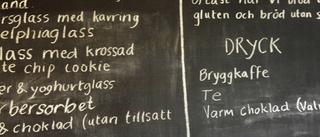 and.
rsglass med karring
elphiaglass
lass med krossad
te chip cookie
er & yoghurtglass
rbersorbet
& choklad (utan tillsatt
gluten och bröd utan s
DRYCK
Bryggkaffe
Te
Varm choklad (Val